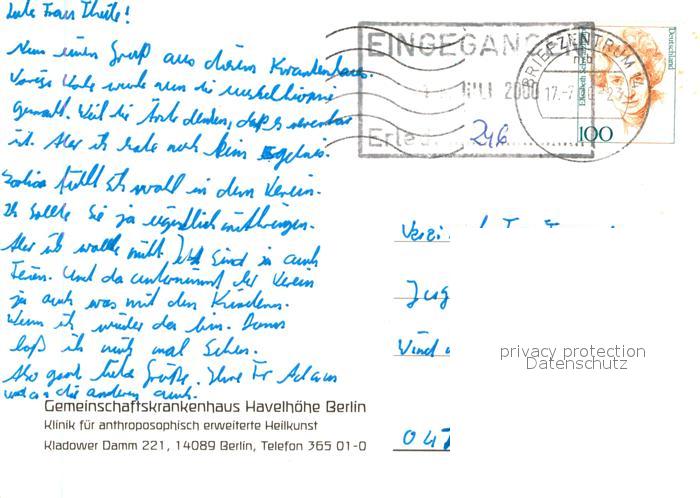 Liebe Frau
Nun einen Gruß aus diesem Krankenhaus.
Vorige Woche wurde nun die
gemacht. Weil die Ärzte denken, daß es
ist. Aber ich habe noch kein
fühlt sich wohl in dem Verein.
Ich sollte Sie ja eigentlich mitbringen.
Aber ich wollte nicht. Jetzt sind ja auch
Ferien. Und da unternimmt der Verein
ja auch was mit den Kindern.
Wenn ich wieder da bin. Dann
laß ich mich mal sehen.
Also ganz liebe Grüße. Ihre Fr Adam
und die anderen auch.
EINGEGANG
2000
Erled. 246
BRIEFZENTRUM 14
mb
17.-7.
Deutschland
100
Jug
Und
047
privacy protection
Datenschutz
Gemeinschaftskrankenhaus Havelhöhe Berlin
Klinik für anthroposophisch erweiterte Heilkunst
Kladower Damm 221, 14089 Berlin, Telefon 365 01-0